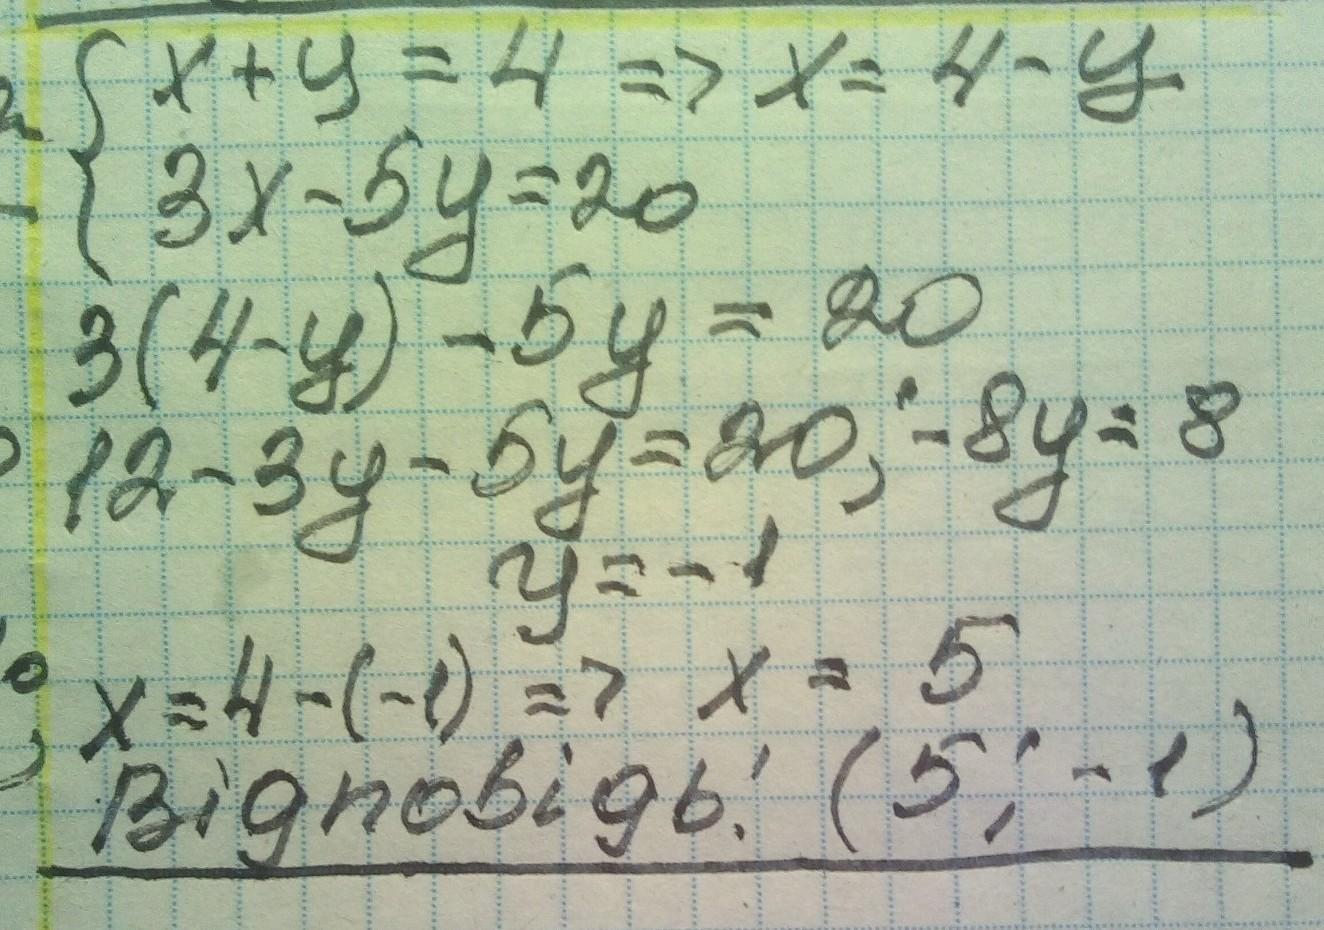 { x+y=4 => x=4-y
3x-5y=20
3(4-y)-5y=20
12-3y-5y=20; -8y=8
y=-1
x=4-(-1) => x=5
Відповідь: (5; -1)